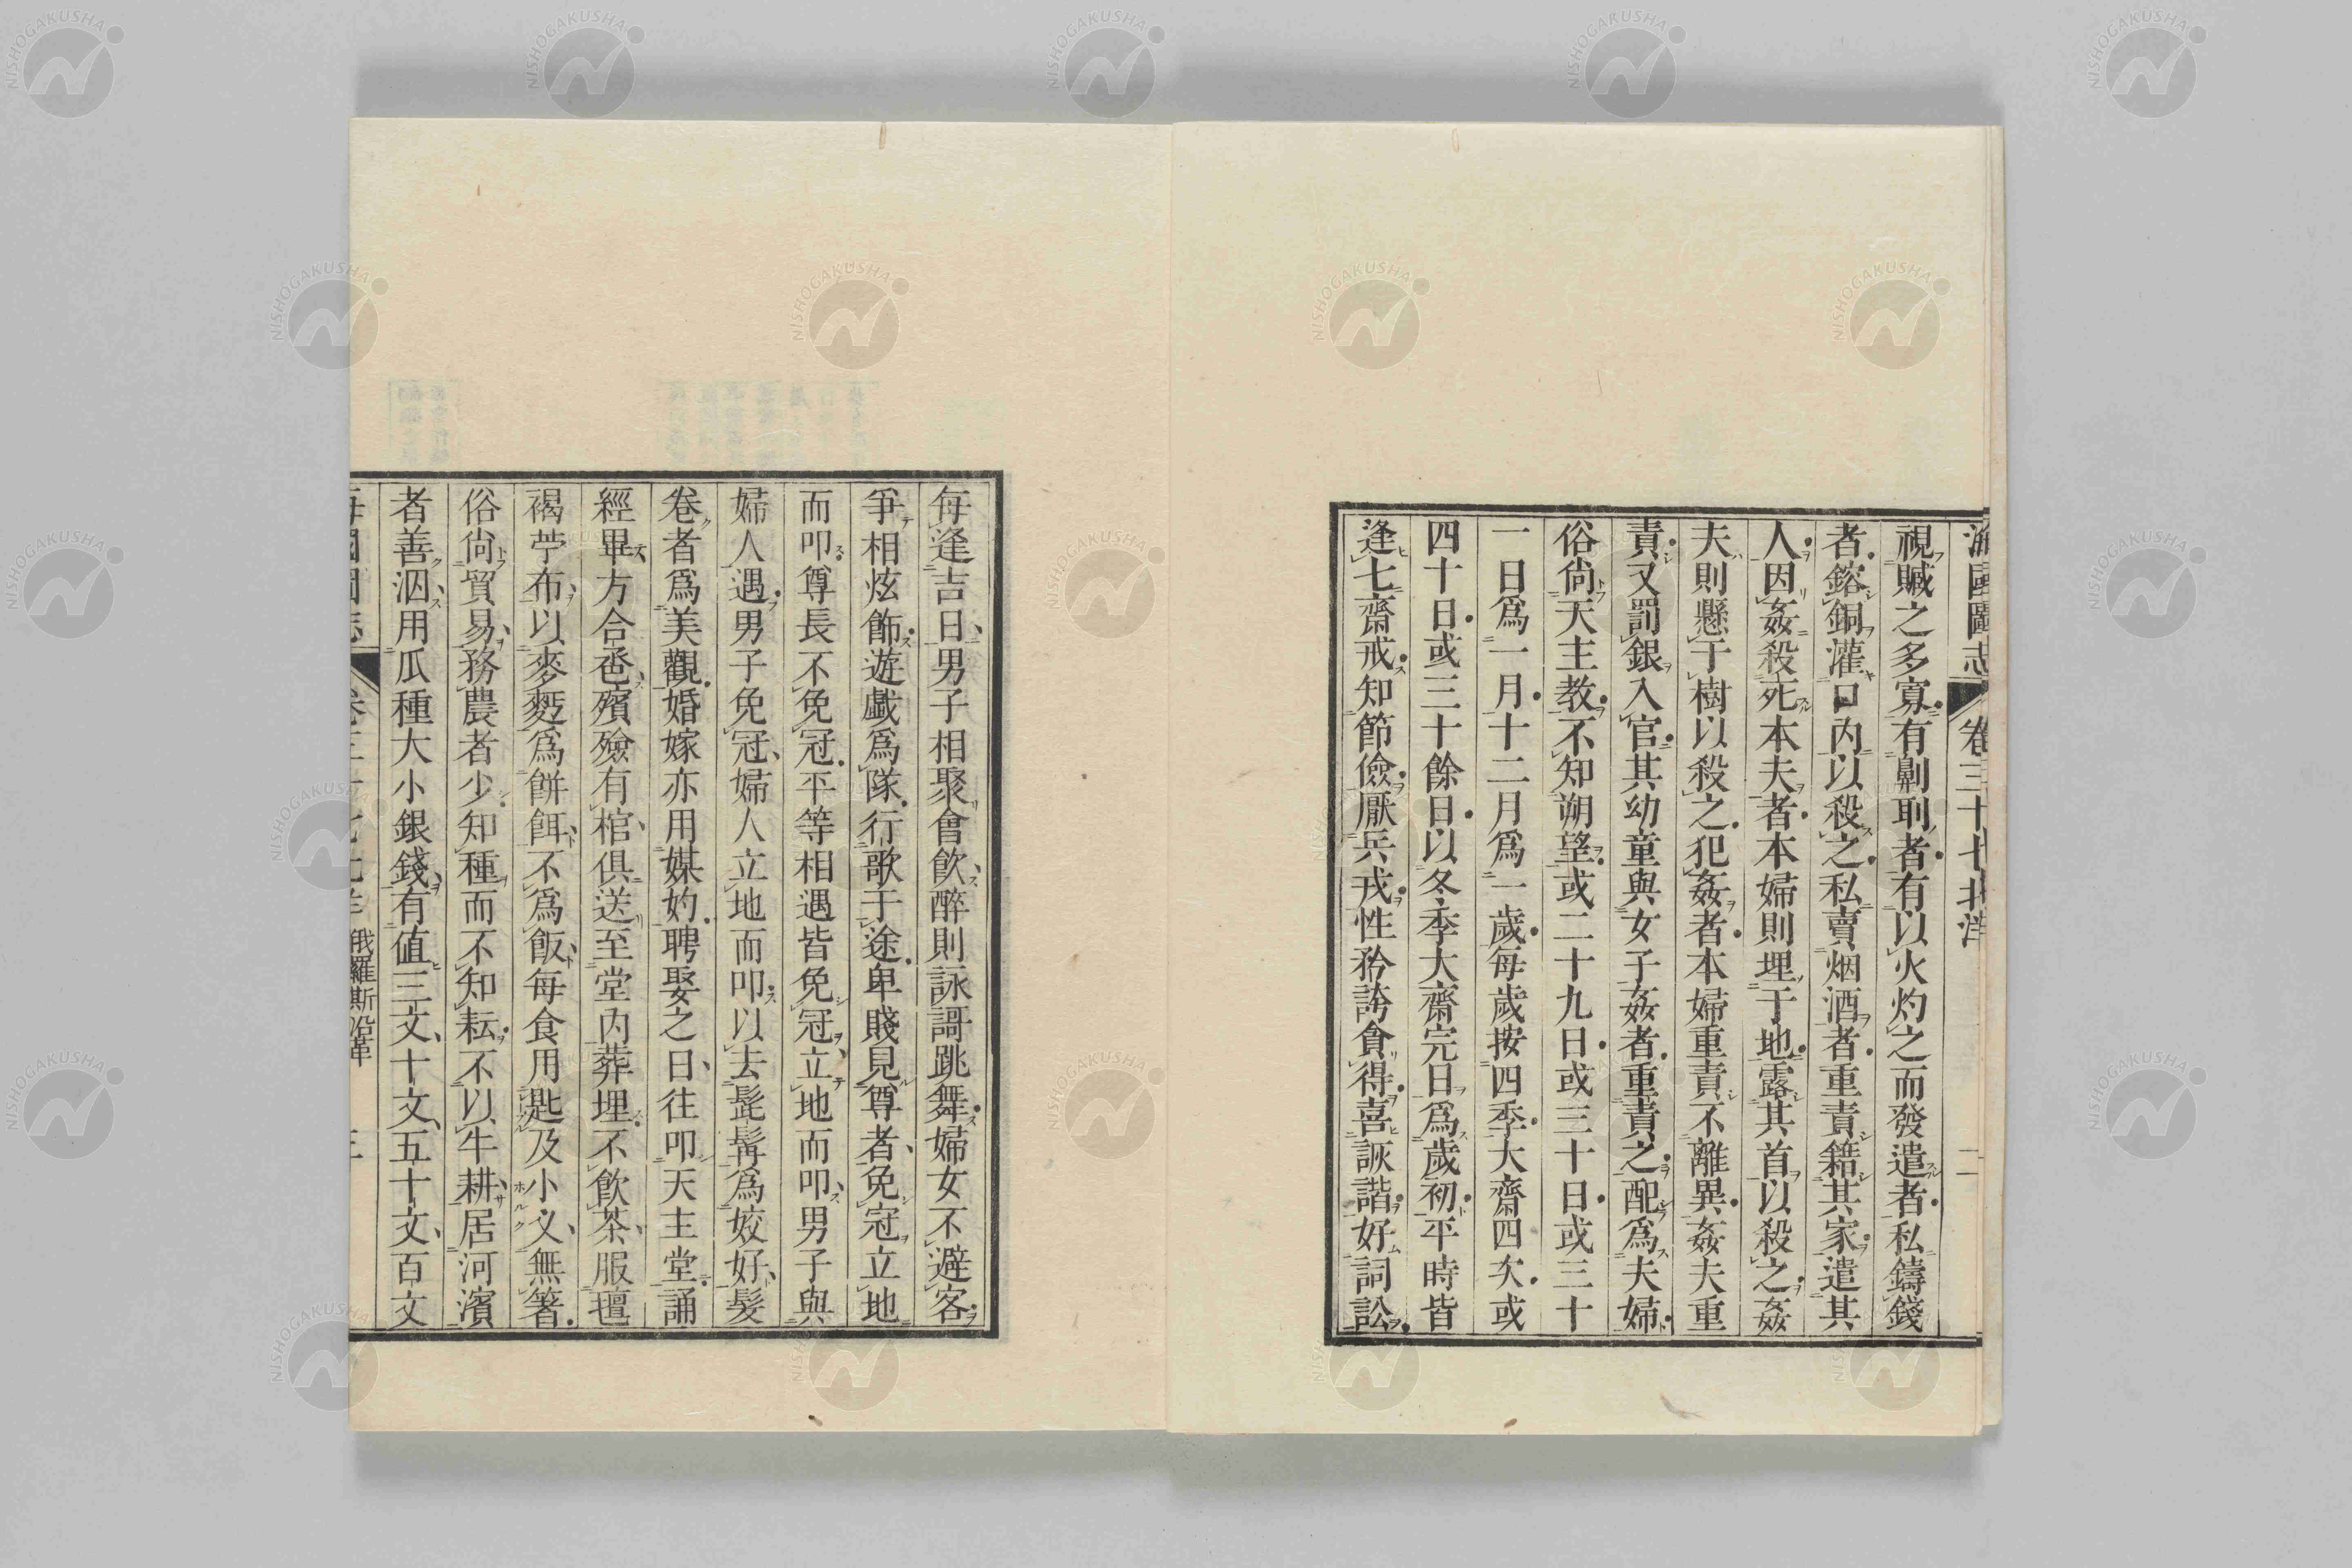 海國圖志 卷三十七北洋 二
視贓之多寡有劓刵者有以火灼之而發遣者私鑄錢
者鎔銅灌口内以殺之私賣烟酒者重責籍其家遣其
人因姦殺死本夫者本婦則埋于地露其首以殺之姦
夫則懸于樹以殺之犯姦者本婦重責不離異姦夫重
責又罰銀入官其幼童與女子姦者重責之配爲夫婦
俗尙天主教不知朔望或二十九日或三十日或三十
一日爲一月十二月爲一歲每歲按四季大齋四次或
四十日或三十餘日以冬季大齋完日爲歲初平時皆
逢七齋戒知節儉厭兵戎性矜誇貪得喜詼諧好詞訟
每逢吉日男子相聚會飲醉則詠謌跳舞婦女不避客
爭相炫飾遊戲爲隊行歌于途卑賤見尊者免冠立地
而叩尊長不免冠平等相遇皆免冠立地而叩男子與
婦人遇男子免冠婦人立地而叩以去髭髯爲姣好髮
卷者爲美觀婚嫁亦用媒妁聘娶之日往叩天主堂誦
經畢方合卺殯殮有棺俱送至堂内葬埋不飲茶服氊
褐苧布以麥麪爲餅餌不爲飯每食用匙及小叉無箸
俗尙貿易務農者少知種而不知耘不以牛耕居河濱
者善泅用瓜種大小銀錢有值三文十文五十文百文
海國圖志 卷三十七北洋 俄羅斯沿革 三